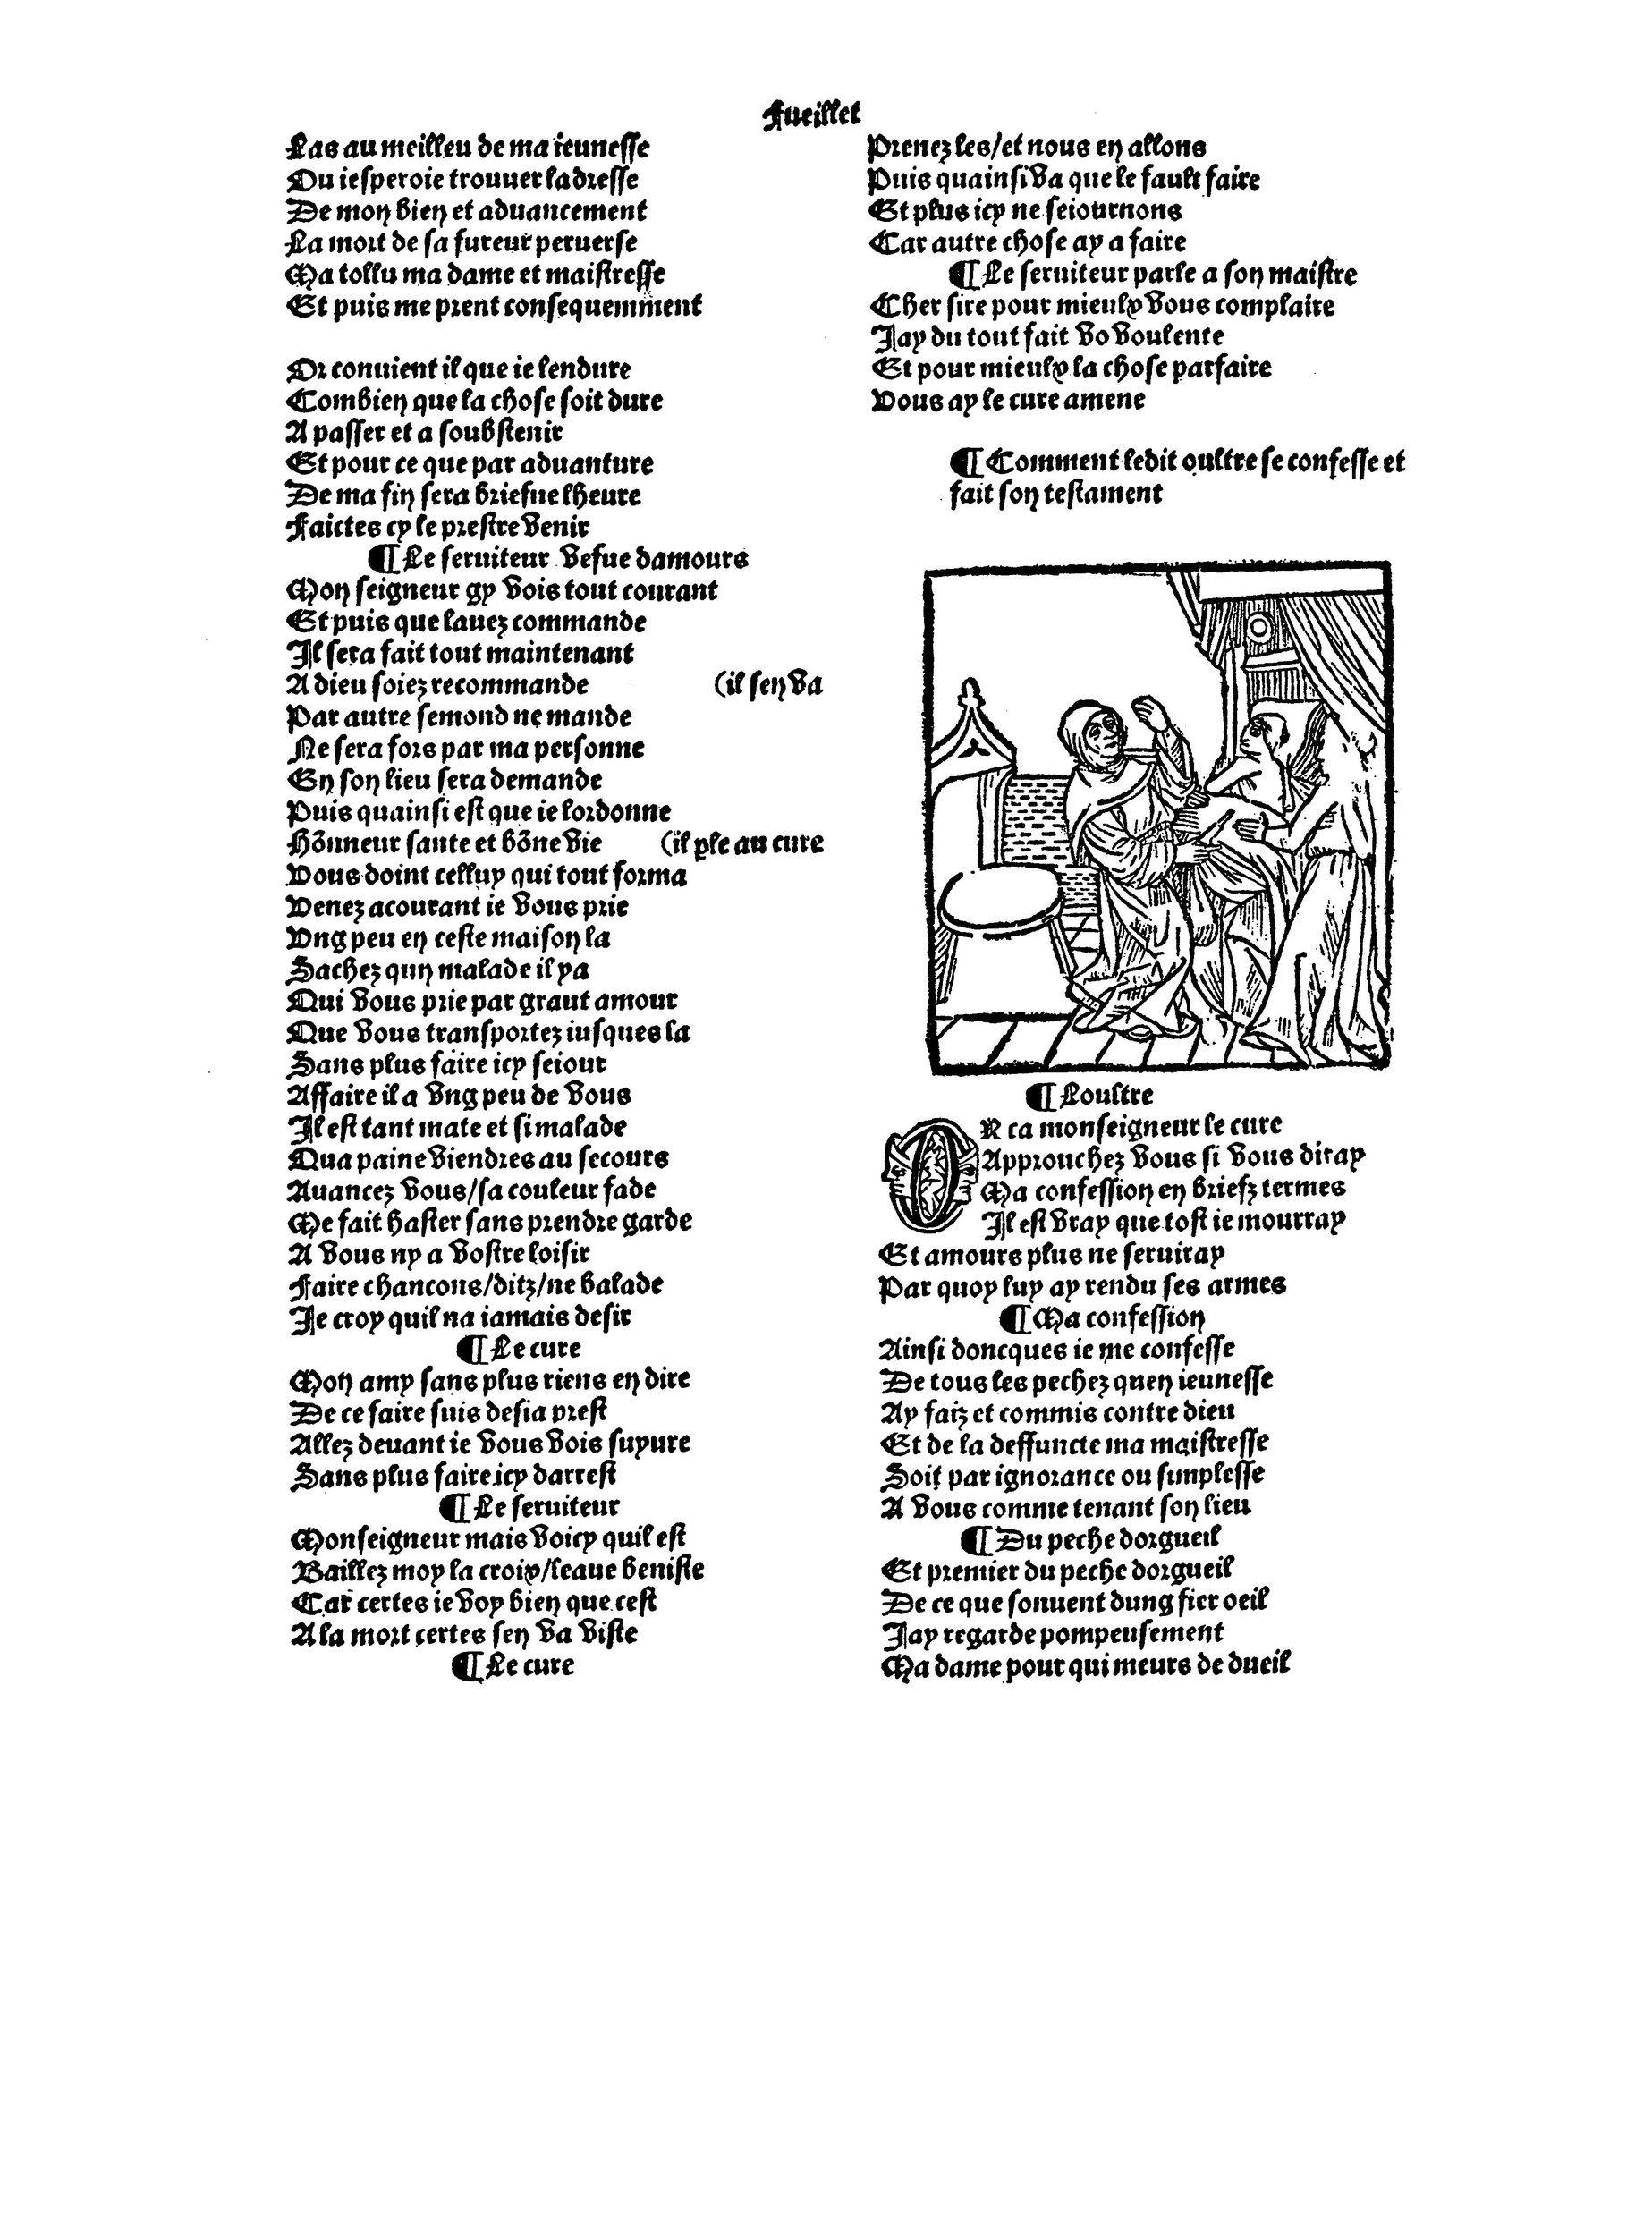 Fueillet
Las au meilleu de ma ieunesse
Ou iesperoie trouuer ladresse
De mon bien et aduancement
La mort de sa fureur peruerse
Ma tollu ma dame et maistresse
Et puis me prent consequemment
Or conuient il que ie lendure
Combien que la chose soit dure
A passer et a soubstenir
Et pour ce que par aduanture
De ma fin sera briefue lheure
Faictes cy le prestre venir
¶ Le seruiteur vefue damours
Mon seigneur gy vois tout courant
Et puis que lauez commande
Il sera fait tout maintenant
A dieu soiez recommande (il sen va
Par autre semond ne mande
Ne sera fors par ma personne
En son lieu sera demande
Puis quainsi est que ie lordonne
Hõnneur sante et bõne vie (il ꝑle au cure
Vous doint celluy qui tout forma
Venez acourant ie vous prie
Vng peu en ceste maison la
Sachez qun malade il ya
Qui vous prie par grant amour
Que vous transportez iusques la
Sans plus faire icy seiour
Affaire il a vng peu de vous
Il est tant mate et si malade
Qua paine viendres au secours
Auancez vous/sa couleur fade
Me fait haster sans prendre garde
A vous ny a vostre loisir
Faire chancons/ditz/ne balade
Je croy quil na iamais desir
¶ Le cure
Mon amy sans plus riens en dire
De ce faire suis desia prest
Allez deuant ie vous vois suyure
Sans plus faire icy darrest
¶ Le seruiteur
Monseigneur mais voicy quil est
Baillez moy la croix/leaue beniste
Car certes ie voy bien que cest
A la mort certes sen va viste
¶ Le cure
Prenez les/et nous en allons
Puis quainsi va que le fault faire
Et plus icy ne seiournons
Car autre chose ay a faire
¶ Le seruiteur parle a son maistre
Cher sire pour mieulx vous complaire
Jay du tout fait vo voulente
Et pour mieulx la chose parfaire
Vous ay le cure amene
¶ Comment ledit oultre se confesse et
fait son testament
¶ Loultre
OR ca monseigneur le cure
Approuchez vous si vous diray
Ma confession en briefz termes
Il est vray que tost ie mourray
Et amours plus ne seruiray
Par quoy luy ay rendu ses armes
¶ Ma confession
Ainsi doncques ie me confesse
De tous les pechez quen ieunesse
Ay faiz et commis contre dieu
Et de la deffuncte ma maistresse
Soit par ignorance ou simplesse
A vous comme tenant son lieu
¶ Du peche dorgueil
Et premier du peche dorgueil
De ce que souuent dung fier oeil
Jay regarde pompeusement
Ma dame pour qui meurs de dueil